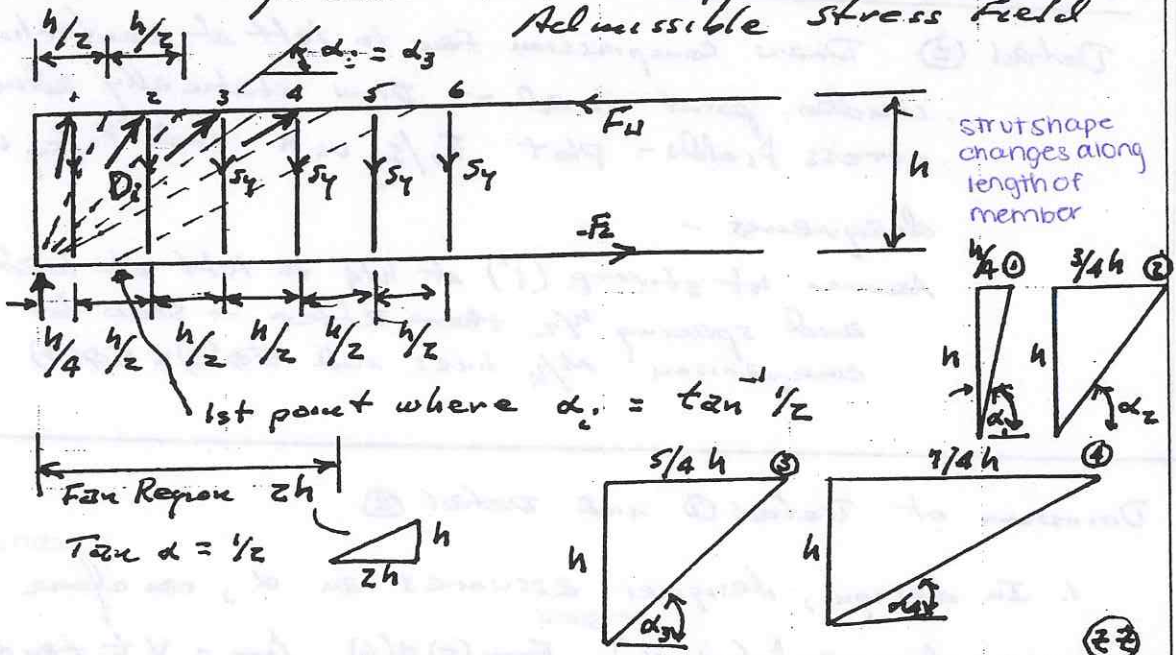 Admissible Stress Field
h/2 h/2
αi = α3
1 2 3 4 5 6
FU
Di Sy Sy Sy Sy
h
-F2
strut shape
changes along
length of
member
h/4 h/2 h/2 h/2 h/2 h/2
1st point where αi = tan⁻¹ 1/2
h/4 ① 3/4 h ②
h h
α1 α2
Fan Region 2h
Tan α = 1/2
h
2h
5/4 h ③ 7/4 h ④
h h
α3 α4
(22)